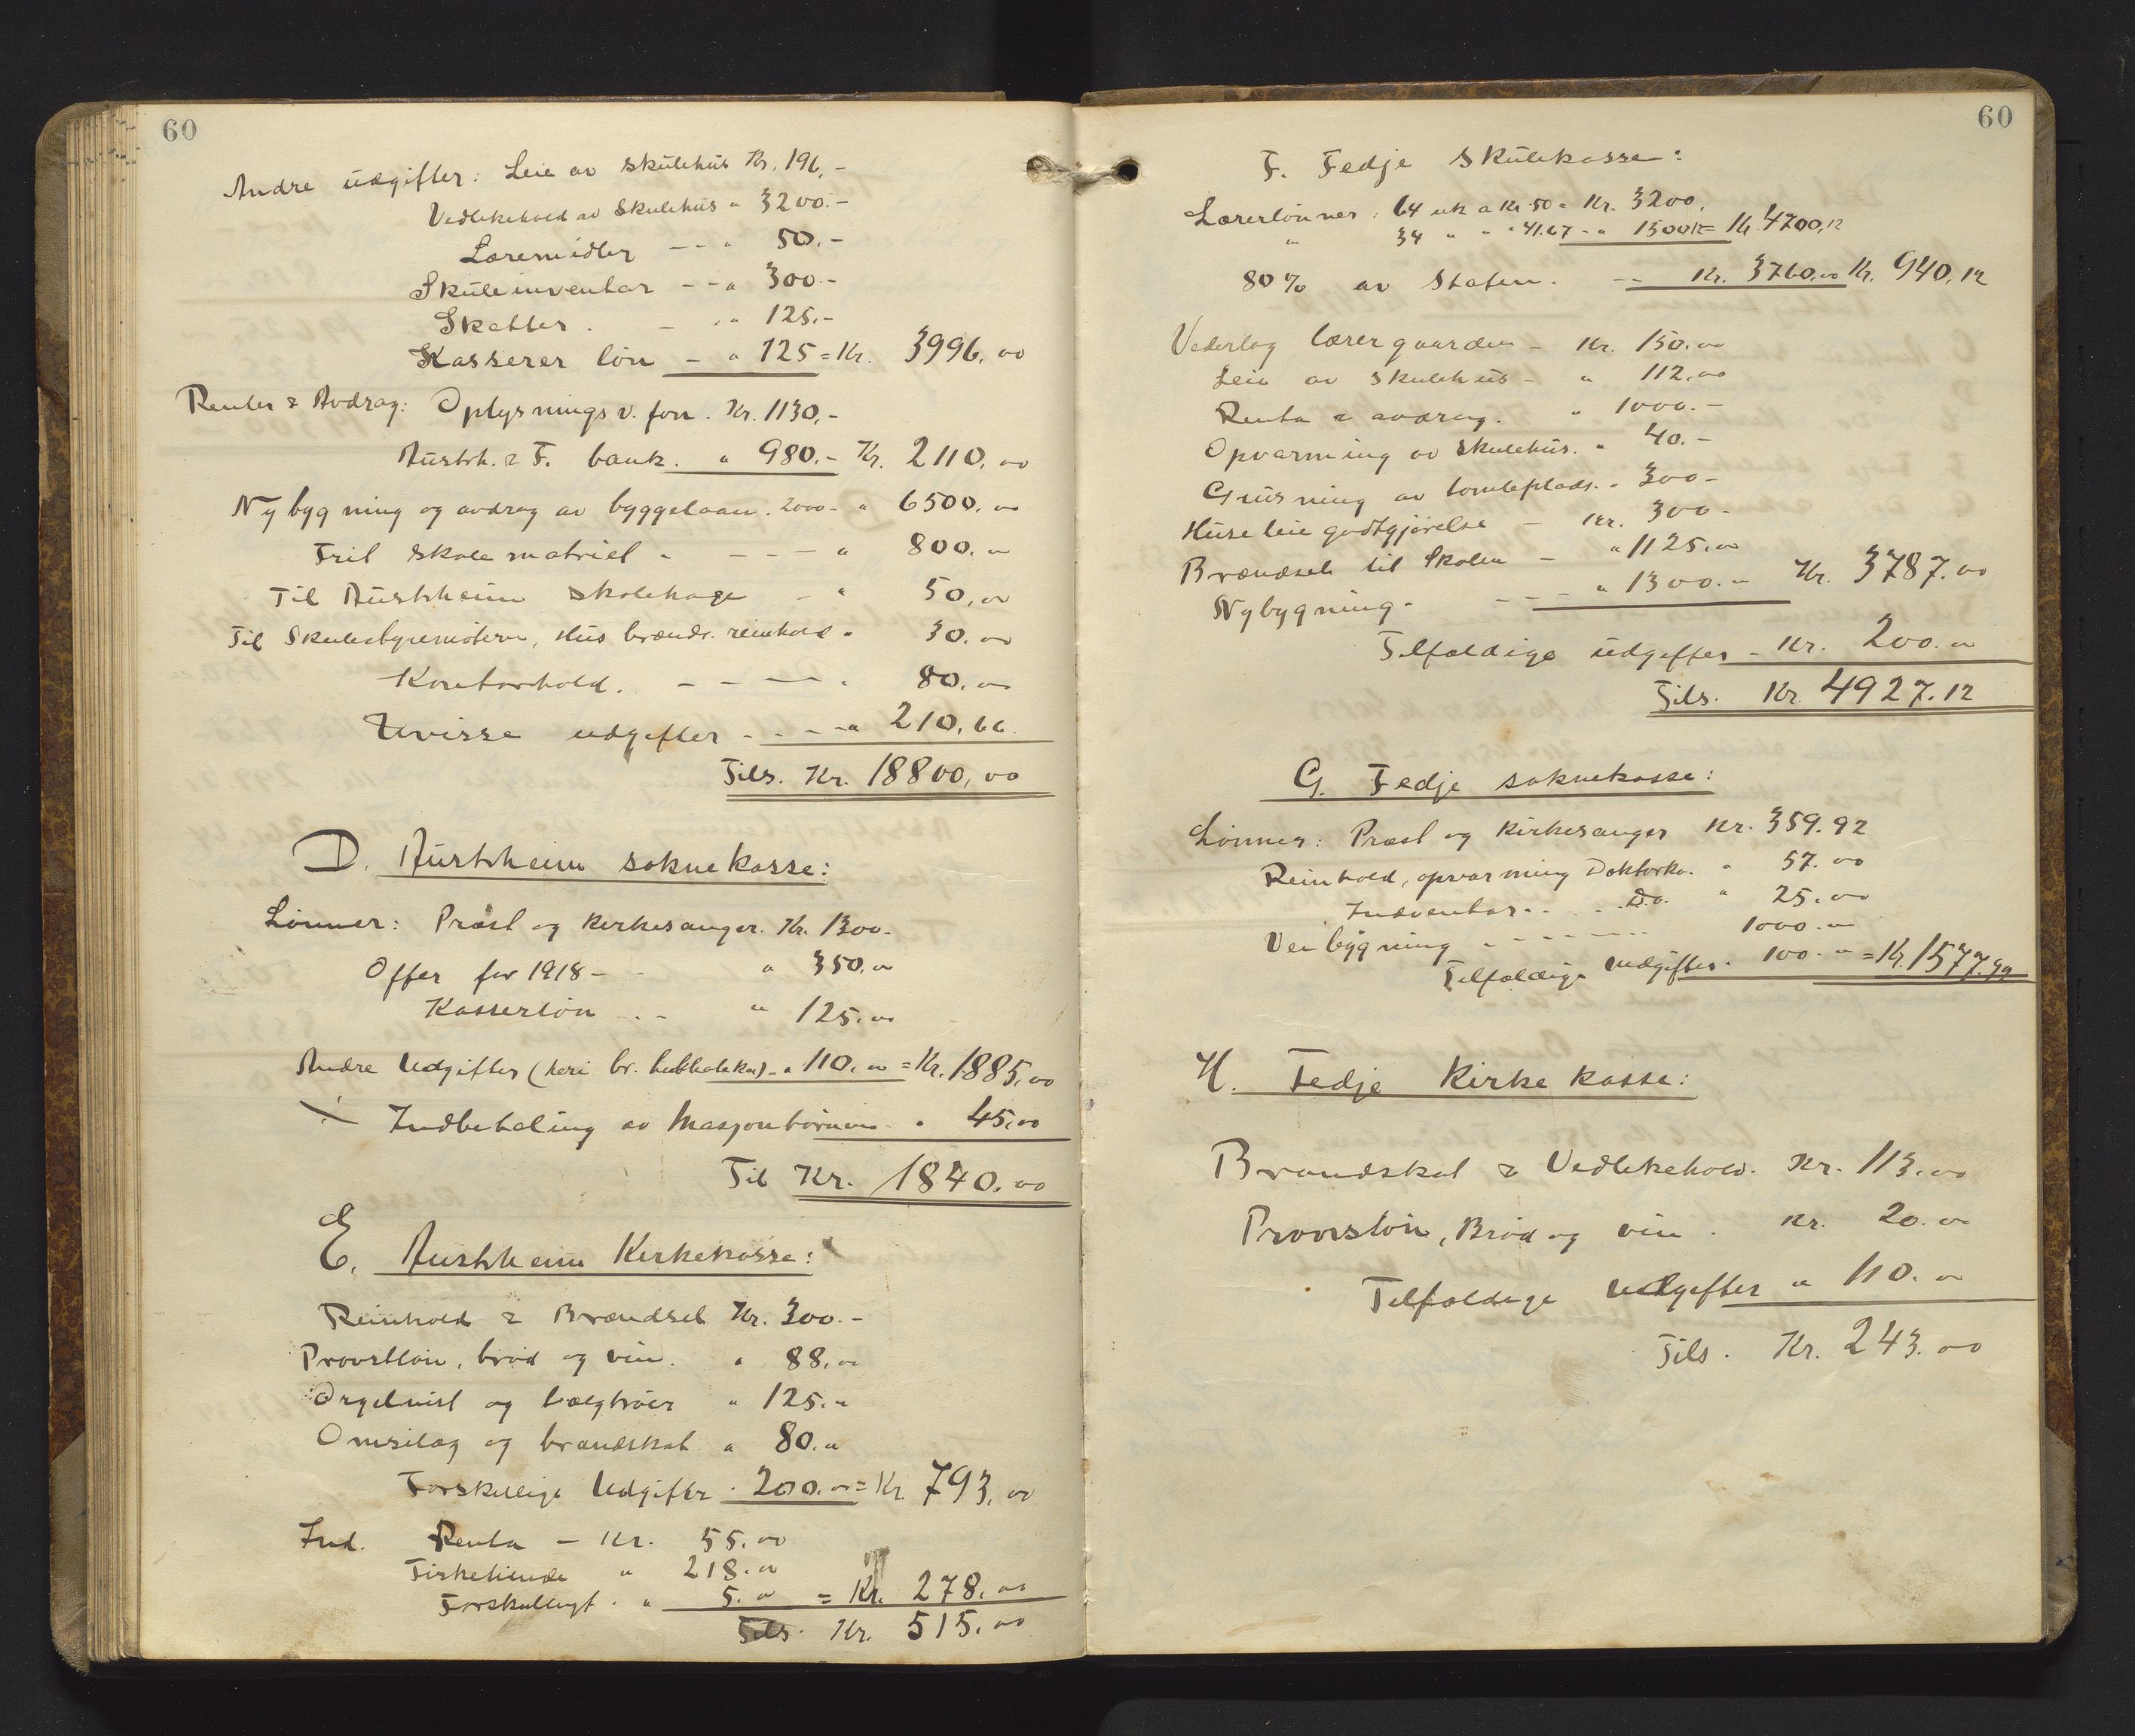 60
Andre udgifter: Leie av skulehus Kr. 196,-
Vedlikehold av Skulehus " 3200.-
Læremidler - - " 50.-
Skuleinventar - - " 300.-
Skatter. - " 125.-
Kasserer løn - " 125 = Kr. 3996,00
Renter & Avdrag: Oplysnings v. fon. Kr. 1130,-
Austrh. & F. bank. " 980.- Kr. 2110,00
Nybygning og avdrag av byggelaan. 2000.- " 6500,00
Frit skole matriel - - - - " 800.00
Til Austrheim skolehage - " 50,00
Til Skulestyremøterne, Hus brænds. reinhold " 30.00
Kontorhold. - - - - . 80.00
Uvisse udgifter - - - - " 210,66
Tils. Kr. 18800,00
D. Austrheim soknekasse:
Lønner: Præst og kirkesanger. Kr. 1300.-
Offer for 1918 - - " 350.00
Kasserløn . . - " 125.00
Andre Udgifter (heri br. ) - " 110.00 = Kr. 1885,00
÷ Indbetaling av " 45,00
Til Kr. 1840.00
E. Austrheim Kirkekasse:
Reinhold & Brændsel Kr. 300.-
Provstløn, brød og vin. " 88.00
Orgelnist og bælgtrøer " 125.00
Omsilag og brandskat " 80.00
Forskellige Udgifter . 200.00 = Kr. 793,00
Ind. Renta - Kr. 55.00
" 218.00
Forskjelligt. " 5.00 = Kr. 278.00
Tils. Kr. 515.00
60
F. Fedje Skulekasse:
Lærerlønner: 64 uk a Kr 50 = Kr. 3200,
" 34 " " " 41.67 - " 1500.12 = Kr. 4700,12
80% av Staten. - - Kr. 3760.00 Kr. 940,12
Vederlag lærergaarden - Kr. 150.00
Leie av skulehus - " 112.00
Renta & avdrag. " 1000.-
Opvarming av skulehus. " 40.-
Grusning av tomteplads. " 300-
Huseleie godtgjørelse - Kr. 300-
Brændsel til Skolen - " 1125.00
Nybygning. - - - " 1300.00 Kr. 3787.00
Tilfældige udgifter - Kr. 200.00
Tils. Kr. 4927.12
G. Fedje soknekasse:
Lønner: Præst og Kirkesanger Kr. 359.92
Reinhold, opvarming Doktorko. " 57.00
Indventar. . . . Do. " 25.00
Veibygning - - - - - - 1000.00
Tilfældige udgifter. 100.00 = Kr. 1577.99
H. Fedje Kirkekasse:
Brandskat & Vedlikehold. Kr. 113.00
Provstløn, Brød og vin. Kr. 20.00
Tilfældige udgifter " 110.00
Tils. Kr. 243.00